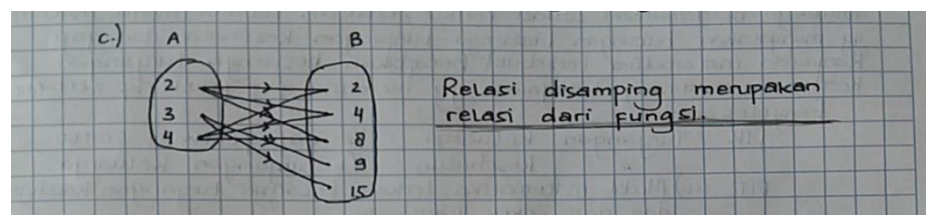 c.) A B
2 2
3 4
4 8
9
15
Relasi disamping merupakan
relasi dari fungsi.